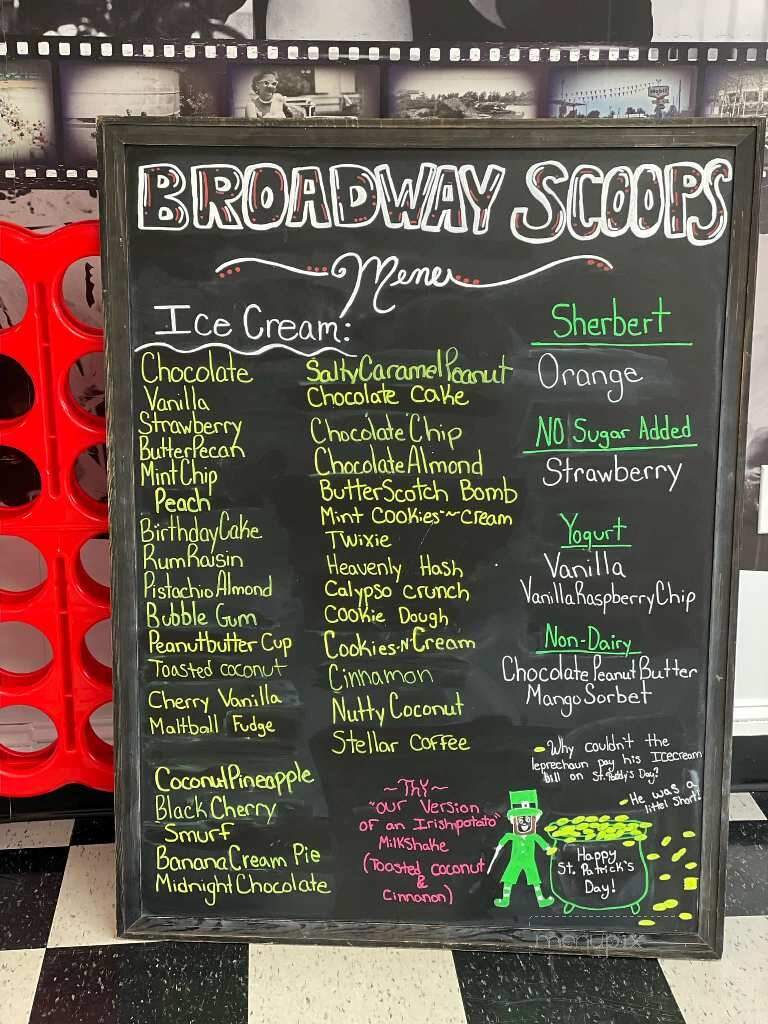 BROADWAY SCOOPS
Menu
Ice Cream:
Chocolate
Vanilla
Strawberry
Butter Pecan
Mint Chip
Peach
Birthday Cake
Rum Raisin
Pistachio Almond
Bubble Gum
Peanutbutter Cup
Toasted coconut
Cherry Vanilla
Maltball Fudge
Coconut Pineapple
Black Cherry
Smurf
Banana Cream Pie
Midnight Chocolate
Salty Caramel Peanut
Chocolate Cake
Chocolate Chip
Chocolate Almond
ButterScotch Bomb
Mint Cookies~n~Cream
Twixie
Heavenly Hash
Calypso crunch
Cookie Dough
Cookies-N-Cream
Cinnamon
Nutty Coconut
Stellar Coffee
~Try~
"our Version
of an Irishpotato"
Milkshake
(Toasted coconut
&
Cinnanon)
Sherbert
Orange
NO Sugar Added
Strawberry
Yogurt
Vanilla
Vanilla Raspberry Chip
Non-Dairy
Chocolate Peanut Butter
Mango Sorbet
Why couldn't the
leprechaun pay his Icecream
bill on St. Paddy's Day?
He was a
littel short!
Happy
St. Patrick's
Day!
menupix